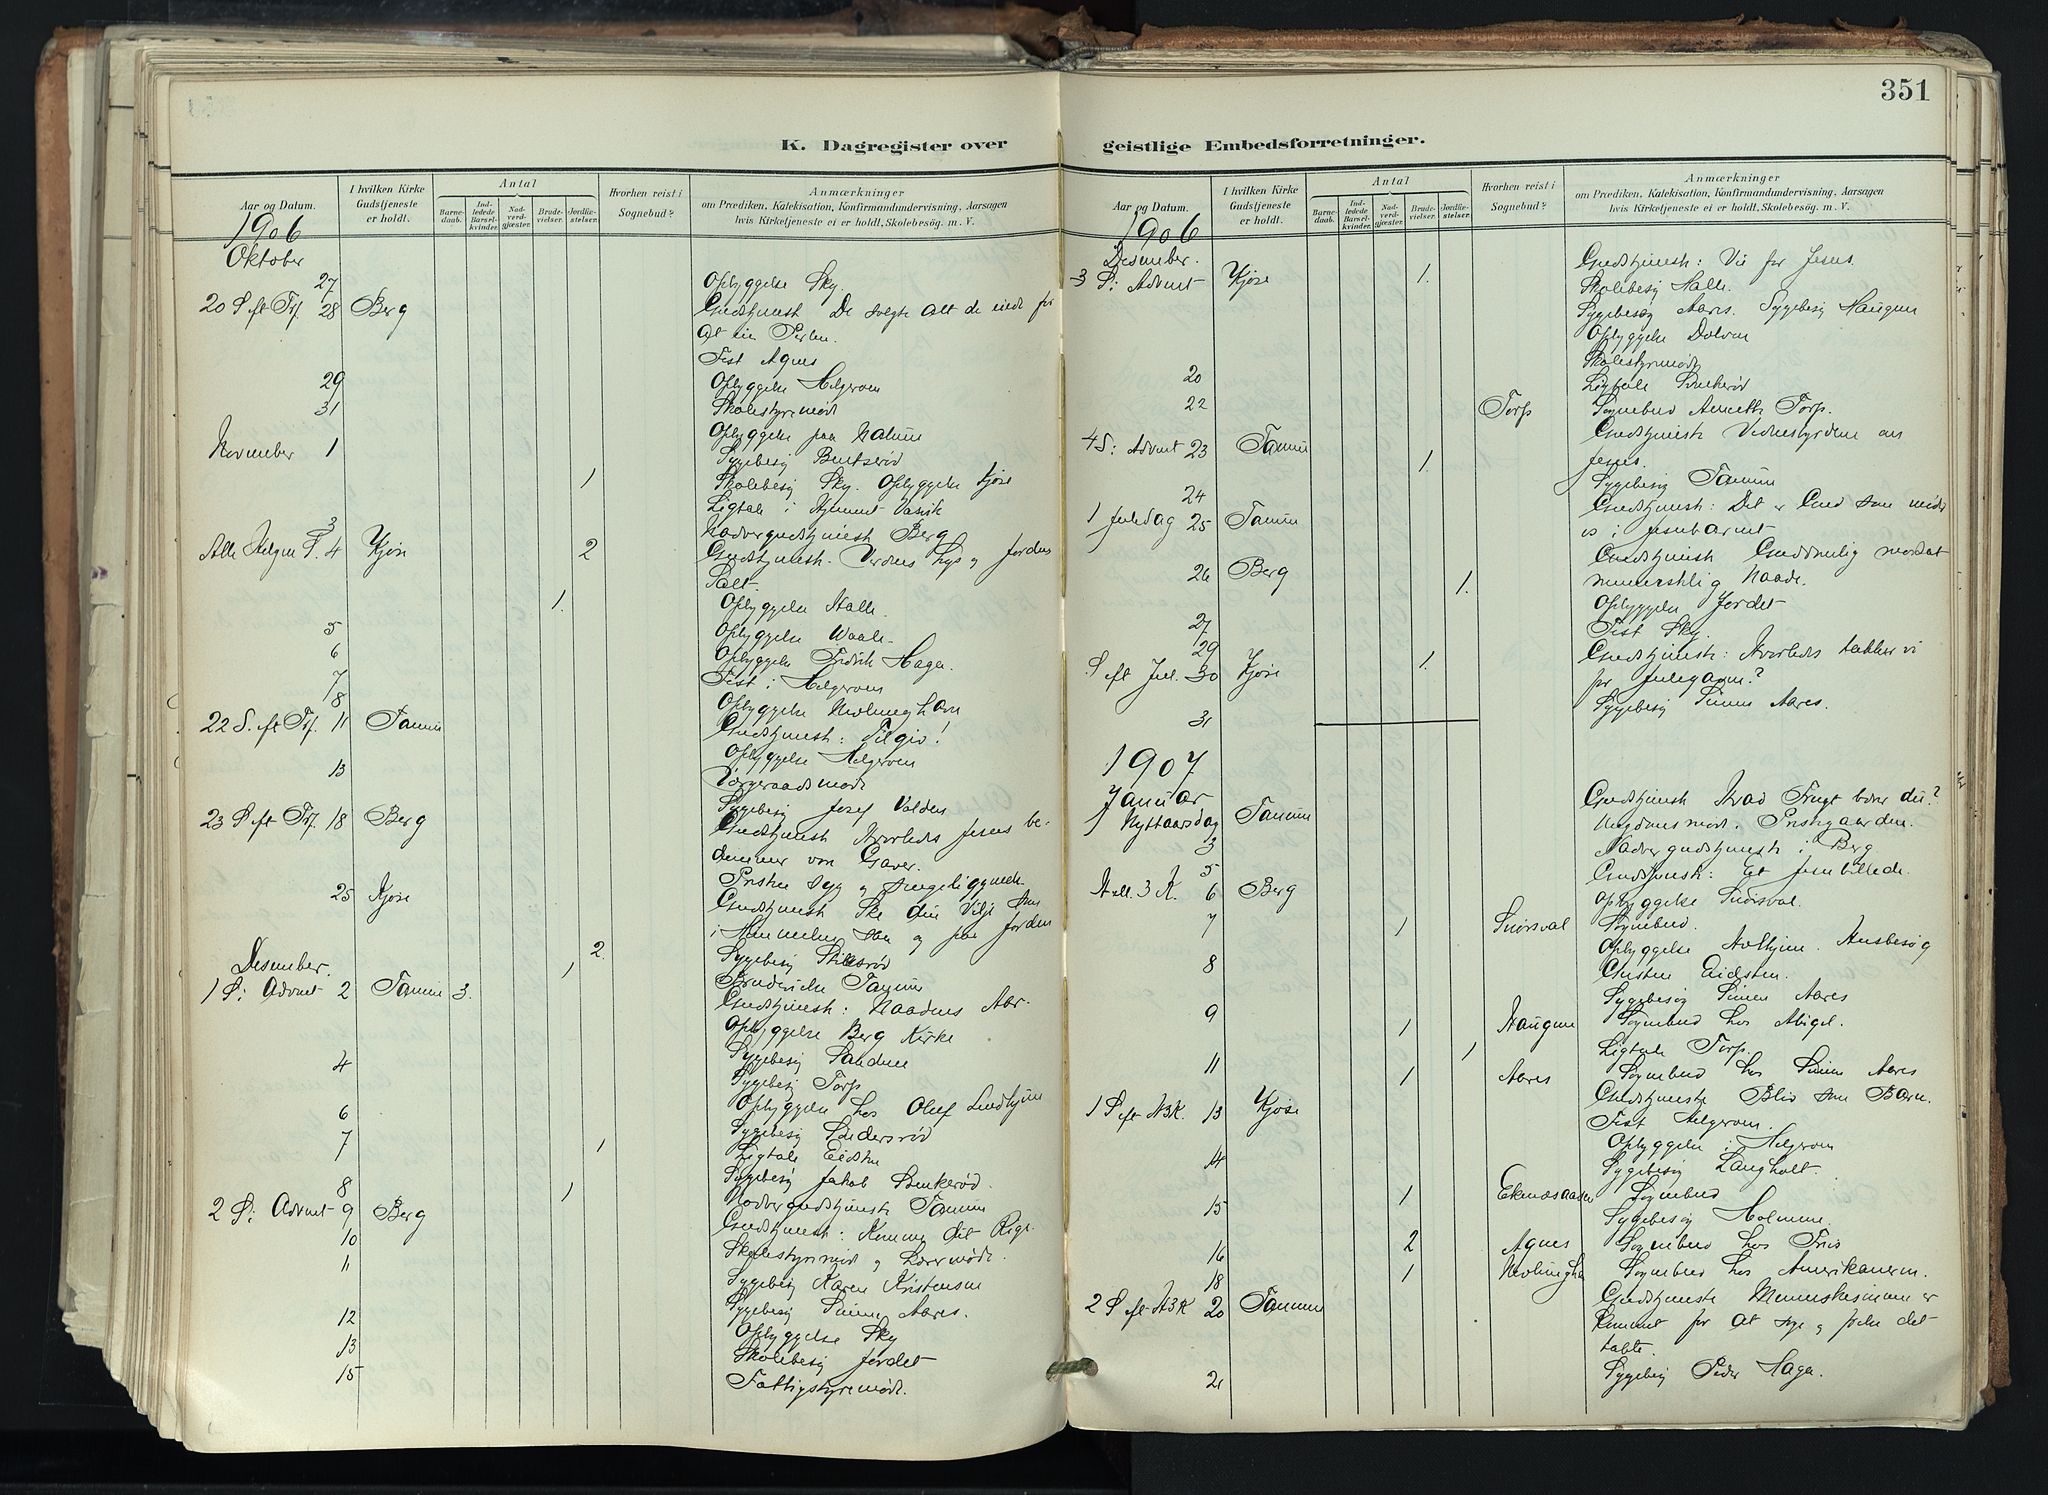 351
K. Dagregister over
geistlige Embedsforretninger.
Aar og Datum.
I hvilken Kirke Gudstjeneste er holdt.
Antal
Barnedaab.
Indledede Barselkvinder.
Nadverdgjæster.
Brudevielser.
Jordfæstelser.
Hvorhen reist i Sognebud?
Anmærkninger
om Prædiken, Katekisation, Konfirmandundervisning, Aarsagen
hvis Kirketjeneste ei er holdt, Skolebesøg. m. V.
1906
Oktober
27 Opbyggelse Sky.
20 S. eft. Trf. 28 Berg Gudstjeneste De solgte alt de eiede for
at vin Perlen.
Fest Agnes
29 Opbyggelse Helgeroen
31 Skolestyremøde
November 1 Opbyggelse paa Nalum
Sygebesøg Bentserød
1 Skolebesøg Sky. Opbyggelse Kjose
3 Ligtale i Hjemmet Vasvik
Nadvergudstjeneste Berg
Alle Helgen S. 4 Kjose 2 Gudstjeneste. Verdens Lys og Jordens
Salt.
1. Opbyggelse Halle.
5 Opbyggelse Waale.
6 Opbyggelse Fredrik Haga.
7 Fest i Helgeroen
8 Opbyggelse Nevlunghavn
22 S. eft. Trf. 11 Tanum Gudstjeneste: Tilgiv!
13 Opbyggelse Helgeroen
Værgeraadsmøde
Sygebesøg Josef Valden
23 S eft Trf. 18 Berg Gudstjeneste Hvorledes Jesus be-
dømmer vore Gaver.
Presten syg og sengeliggende.
25 Kjose Gudstjeneste Ske din Vilje som
i Himmelen saa og paa Jorden
Desember. 2. Sygebesøg
1 Brudevielse Tanum
1 S. i Advent 2 Tanum 3. Gudstjeneste: Naadens Aar.
Opbyggelse Berg Kirke
4 Sygebesøg Sandene
Sygebesøg Torp
6 Opbyggelse hos Oluf Lindhjem
7 Sygebesøg Søndersrød
1 Ligtale Eidsten
8 Sygebesøg Jakob Stenkerød.
1 Nadvergudstjeneste Tanum
2 S. i Advent 9 Berg Gudstjeneste: Komme dit Rige.
10 Skolestyremøde og Lærermøde.
11 Sygebesøg Karen Kristensen
12 Sygebesøg Simen Aares.
13 Opbyggelse Sky
15 Skolebesøg Jordet
Fattigstyremøde.
Aar og Datum.
I hvilken Kirke Gudstjeneste er holdt.
Antal
Barnedaab.
Indledede Barselkvinder.
Nadverdgjæster.
Brudevielser.
Jordfæstelser.
Hvorhen reist i Sognebud?
Anmærkninger
om Prædiken, Katekisation, Konfirmandundervisning, Aarsagen
hvis Kirketjeneste ei er holdt, Skolebesøg. m. V.
1906
Desember.
3 S. i Advent Kjose 1. Gudstjeneste: Vei for Jesus.
Skolebesøg Halle.
Sygebesøg Aares. Sygebesøg Haugene
Opbyggelse Dolven
20 Skolestyremøde
Ligtale Stenkerød
22 Torp Sognebud Anette Torp.
4 S. i Advent 23 Tanum 1. Gudstjeneste Vidnesbyrdene om
Jesus.
24 Sygebesøg Tanum
1 Juledag 25 Tanum Gudstjeneste: Det er Gud som møder
os i Jesubarnet
26 Berg 1. Gudstjeneste Guddommelig modsat
menneskelig Naade.
27 Opbyggelse Jordet
29 Fest Sky.
S. eft Jul. 30 Kjose 1. Gudstjeneste: Hvorledes takker vi
for Julegaven?
31 Sygebesøg Simen Aares.
1907
Januar
1 Nyttaarsdag Tanum Gudstjeneste Hvad Frugt bærer du?
3 Ungdomsmøde. Prestegaarden.
5 Nadvergudstjeneste i Berg
Hell. 3 K. 6 Berg Gudstjeneste: Et Jesubillede.
7 Opbyggelse Snørsval.
1 Snørsval Sognebud.
8 Opbyggelse Hvlhjem. Husbesøg
Gusten Eidsten.
9 Sygebesøg Simen Aares
1 Haugene Sognebud hos Abigel.
11 1 Ligtale Torp.
1 Aares Sognebud hos Simen Aares
1 S. eft H3K. 13 Kjose Gudstjeneste Bliv som Barn.
Fest Helgeroen.
14 Opbyggelse i Helgeroen
Sygebesøg Langholt.
15 1 Ekenæsaasen Sognebud
Sygebesøg Holmene.
16 2 Agnes Sognebud hos Friis
18 1 Nevlungha Sognebud hos Amerikaneren.
2 S eft H3K 20 Tanum Gudstjeneste Menneskesønnen er
kommet for at søge og frelse det
tabte.
21 Sygebesøg Peder Haga.